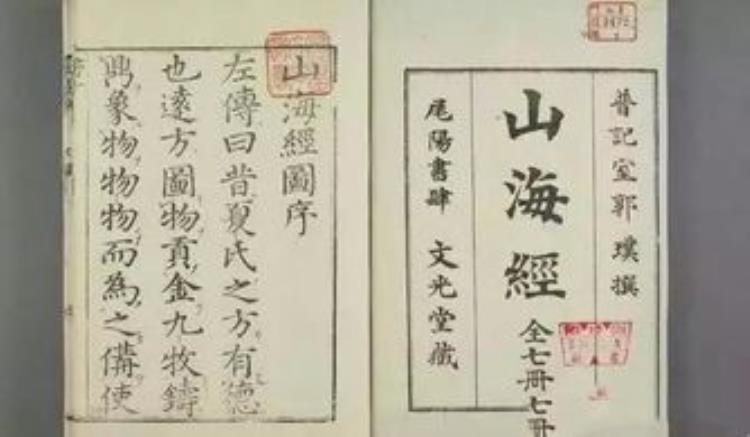 晋記室郭璞撰
山海經
全七冊七冊
尾陽書肆 文光堂藏
山海經圖序
左傳曰昔夏氏之方有德
也遠方圖物貢金九牧鑄
鼎象物物物而為之備使